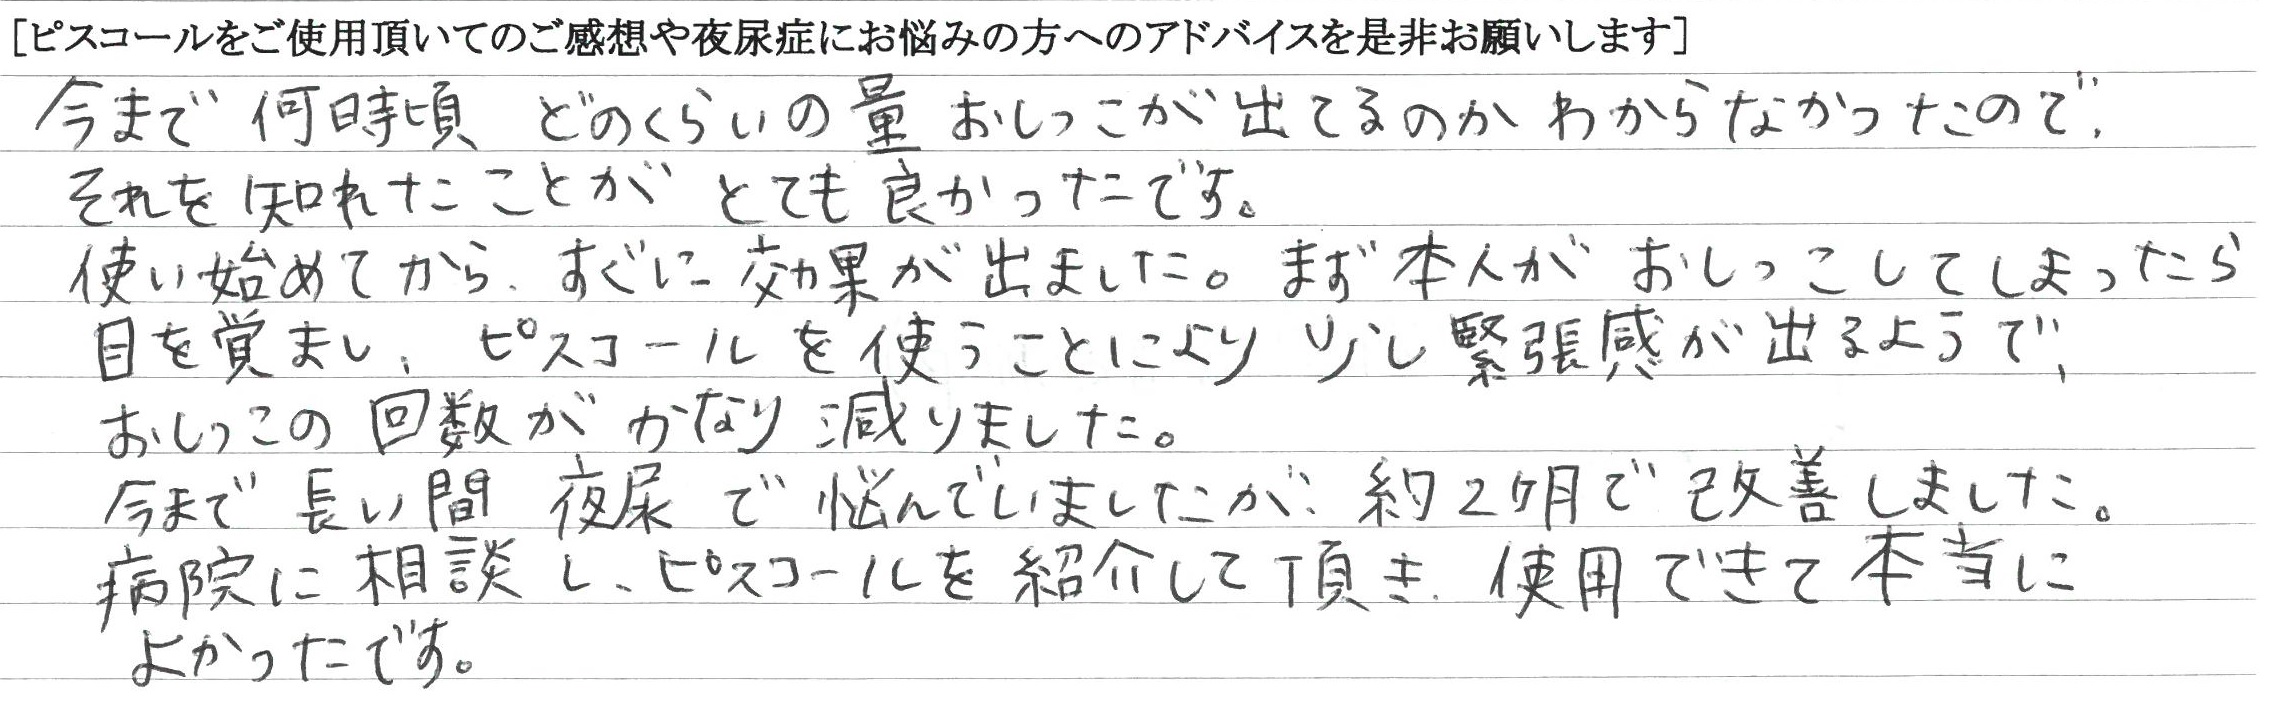 [ピスコールをご使用頂いてのご感想や夜尿症にお悩みの方へのアドバイスを是非お願いします]
今まで 何時頃 どのくらいの量 おしっこが 出てるのか わからなかったので、
それを 知れたことが とても 良かったです。
使い始めてから、すぐに 効果が 出ました。まず 本人が おしっこしてしまったら
目を覚まし、ピスコールを使うことにより 少し緊張感が出るようで、
おしっこの 回数が かなり 減りました。
今まで 長い間 夜尿で 悩んでいましたが、約2ヶ月で 改善しました。
病院に 相談し、ピスコールを 紹介して頂き、使用できて 本当に
よかったです。